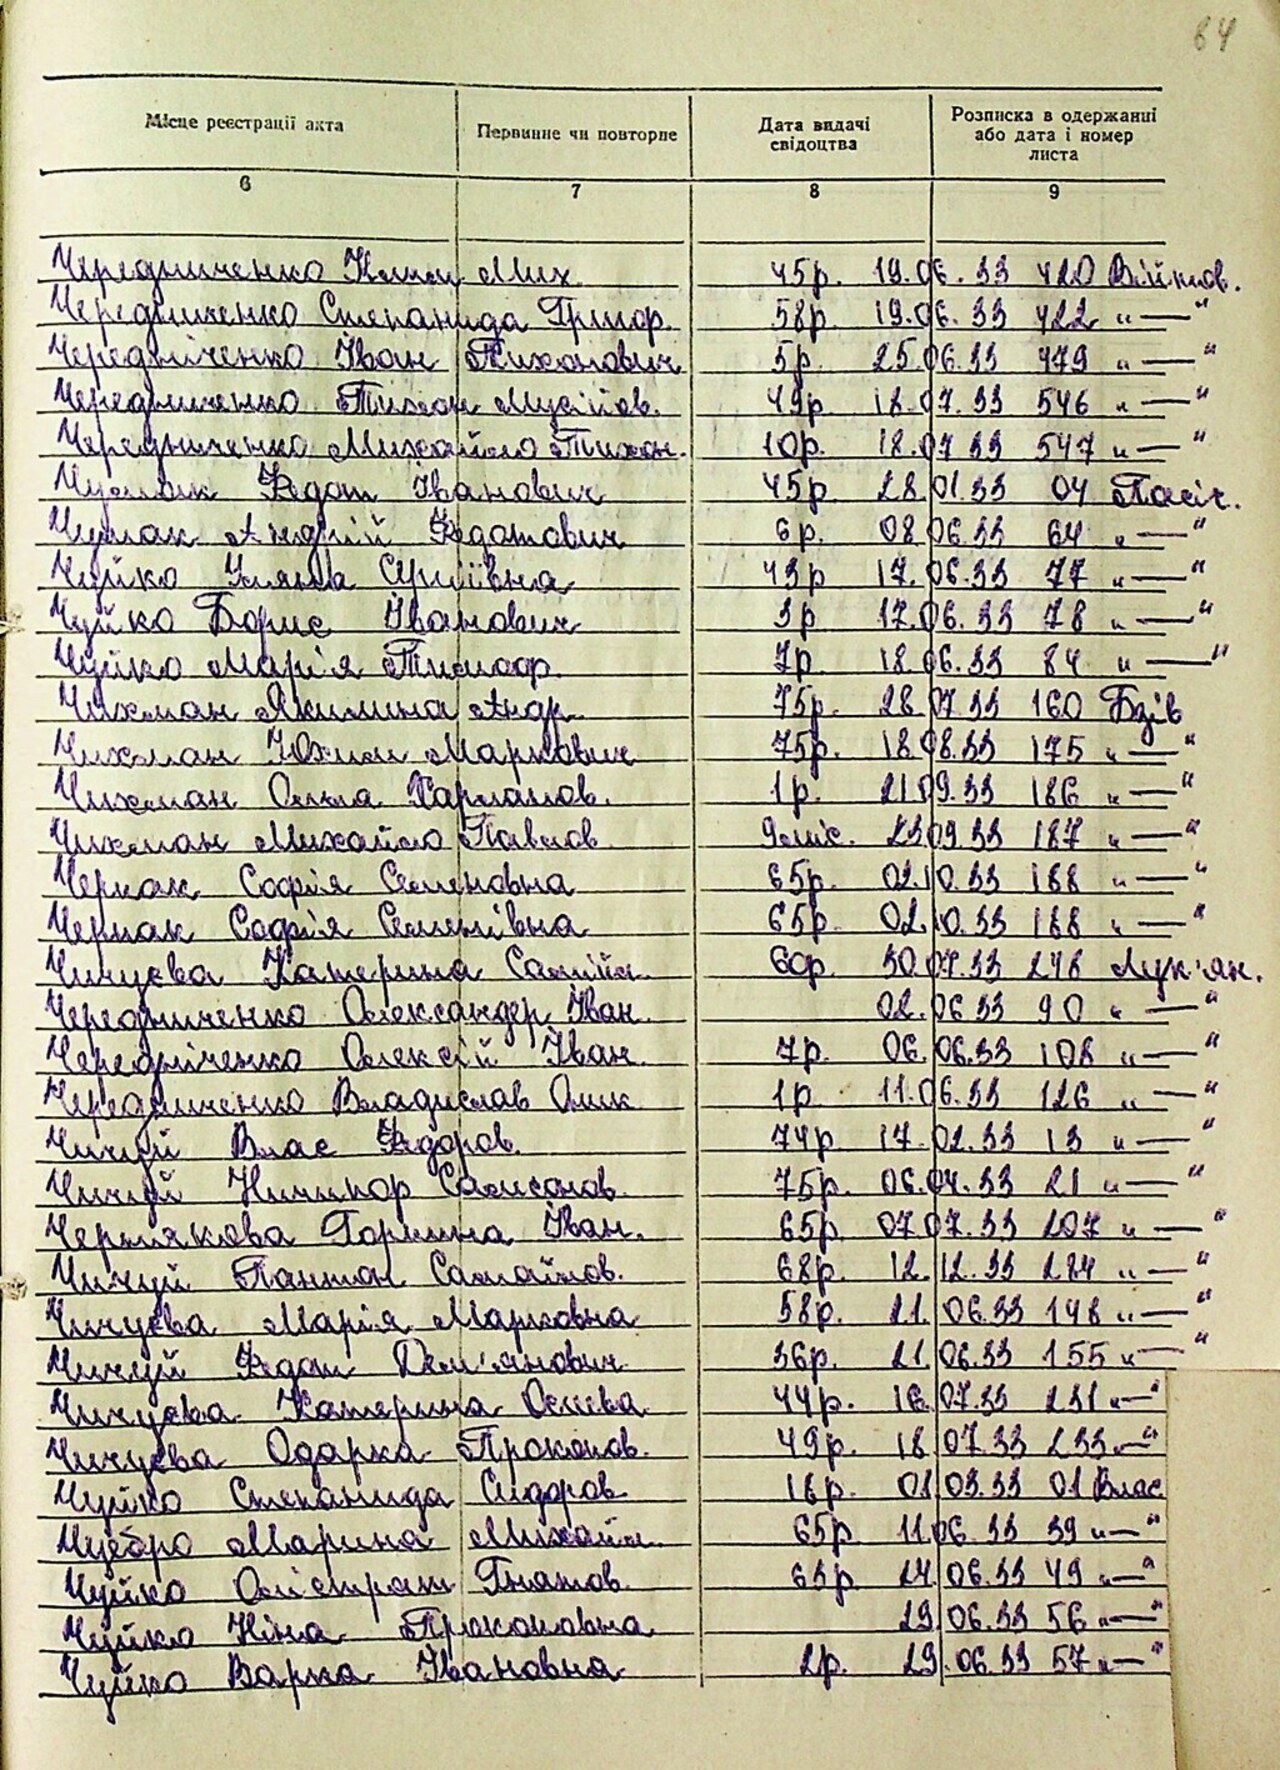 64
Місце реєстрації акта Первинне чи повторне Дата видачі свідоцтва Розписка в одержанні або дата і номер листа
6 7 8 9
Чередниченко Мих. 45р. 19.06.33 420 Війтов.
Чередниченко Степанида Григор. 58р. 19.06.33 422 "—"
Чередніченко Іван Тихонович 5р. 25.06.33 479 "—"
Чередниченко Тихон Мусійов. 49р 18.07.33 546 "—"
Чередниченко Михайло Тихон. 10р. 18.07.33 547 "—"
Чумак Федот Іванович 45р. 28.01.33 04 Пасіч.
Чумак Андрій Федотович 6р. 08.06.33 64 "—"
Чуйко Уляна Сергіївна 43р 17.06.33 77 "—"
Чуйко Борис Іванович 3р 17.06.33 78 "—"
Чуйко Марія Тимофр. 7р. 18.06.33 84 "—"
Чихман Якилина Андр. 75р. 28.07.33 160 Бзів
Чихман Юхим Маркович 75р. 18.08.33 175 "—"
Чихман Ольга Харлапов. 1р. 21.09.33 186 "—"
Чихман Михайло Павлов. 9міс. 23.09.33 187 "—"
Черпак Софія Семеновна 65р. 02.10.33 188 "—"
Черпак Софія Семенівна 65р. 02.10.33 188 "—"
Чичуєва Катерина Самійл. 60р. 30.07.33 248 Лук'ян.
Чередниченко Олександер Іван. 02.06.33 90 "—"
Чередніченко Олексій Іван. 7р. 06.06.33 108 "—"
Чередниченко Владислав Олик. 1р. 11.06.33 126 "—"
Чичуй Влас Федоров. 74р. 17.02.33 13 "—"
Чичуй Ничипор Самсонов. 75р. 06.04.33 21 "—"
Чернякова Горпина Іван. 65р. 07.07.33 207 "—"
Чичуй Самойлов. 68р. 12.12.33 284 "—"
Чичуєва Марія Марковна 58р. 21.06.33 148 "—"
Чичуй Федот Дем'янович 36р. 21.06.33 155 "—"
Чичуєва Катерина 44р. 16.07.33 231 "—"
Чичуєва Одарка Прокопов. 49р. 18.07.33 233 "—"
Чуйко Степанида Сидоров. 18р. 01.03.33 01 Влас
Марина Михайл. 65р. 11.06.33 39 "—"
Чуйко Олістрат Гнатов. 63р. 24.06.33 49 "—"
Чуйко Ніна Прокоповна 29.06.33 56 "—"
Чуйко Варка Івановна 2р. 29.06.33 57 "—"